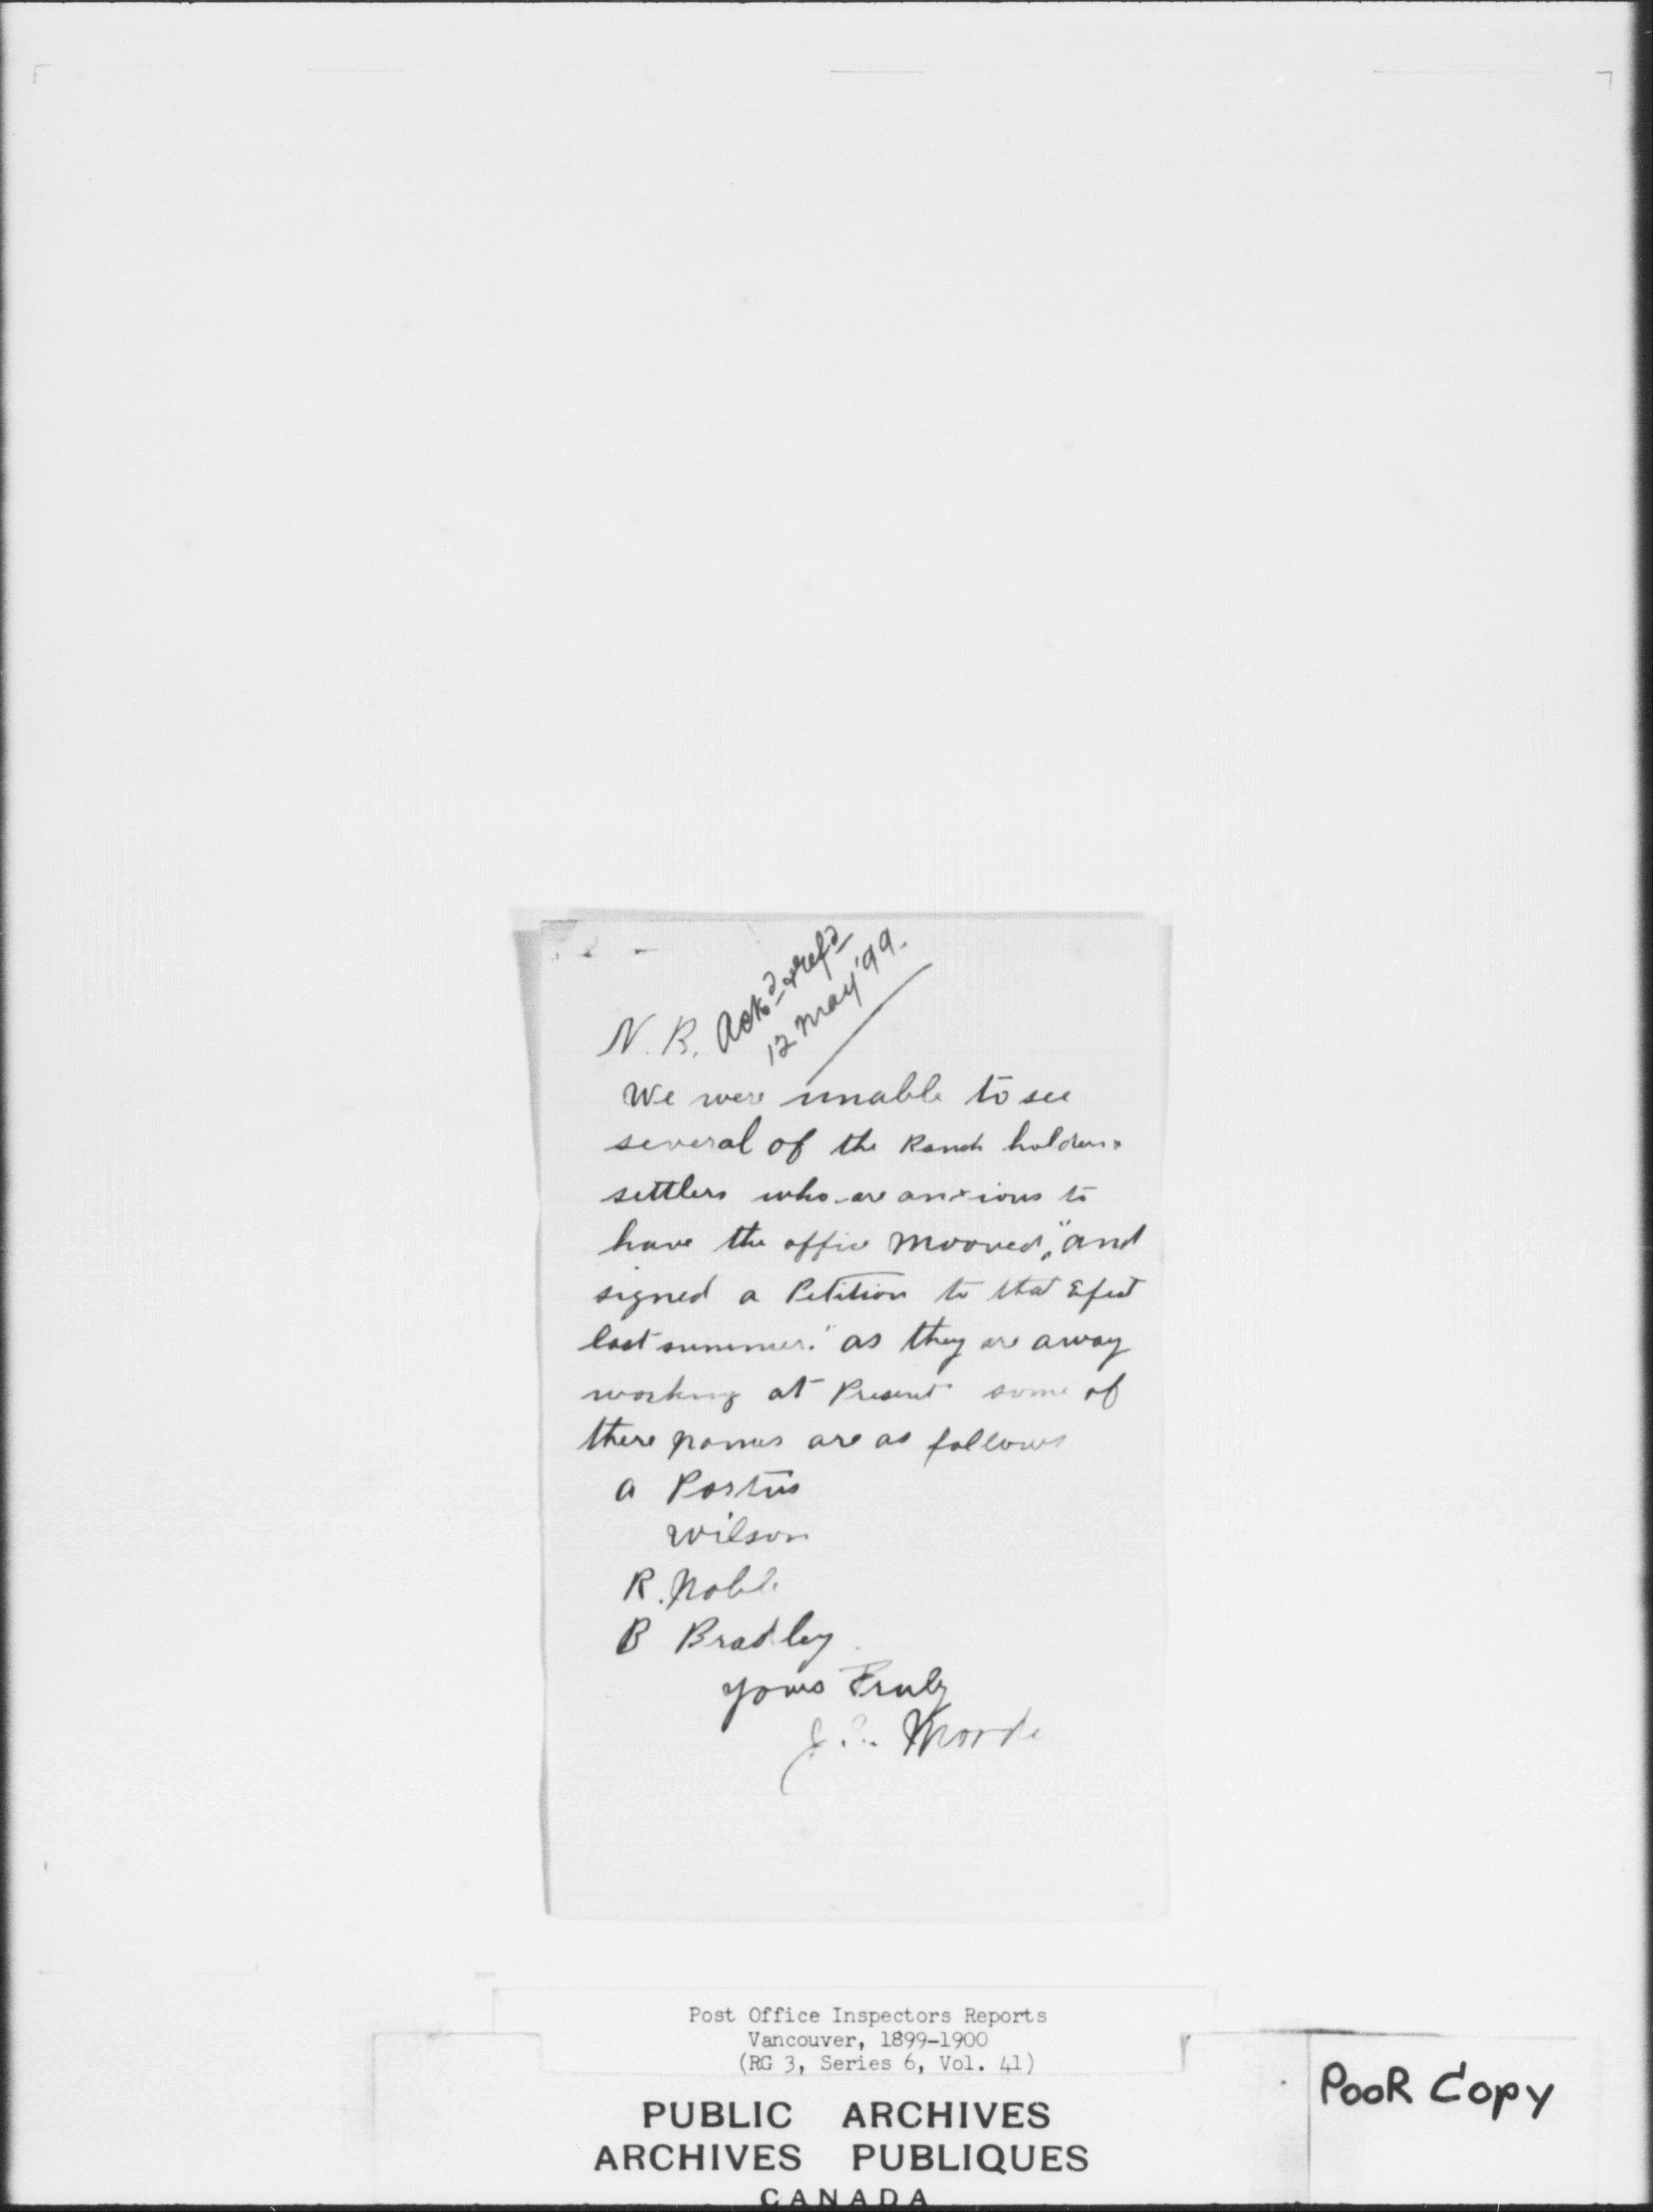 Ackd & refd
12 May '99.
N. B.
We were unable to see
several of the Ranch holders
settlers who are anxious to
have the office mooved, "and
signed a Petition to that Efect
last summer." as they are away
working at Present some of
there names are as follows
A Portis
Wilson
R. Noble
B Bradley
yours Truly
J.
Post Office Inspectors Reports
Vancouver, 1899-1900
(RG 3, Series 6, Vol. 41)
PUBLIC ARCHIVES
ARCHIVES PUBLIQUES
CANADA
PooR Copy